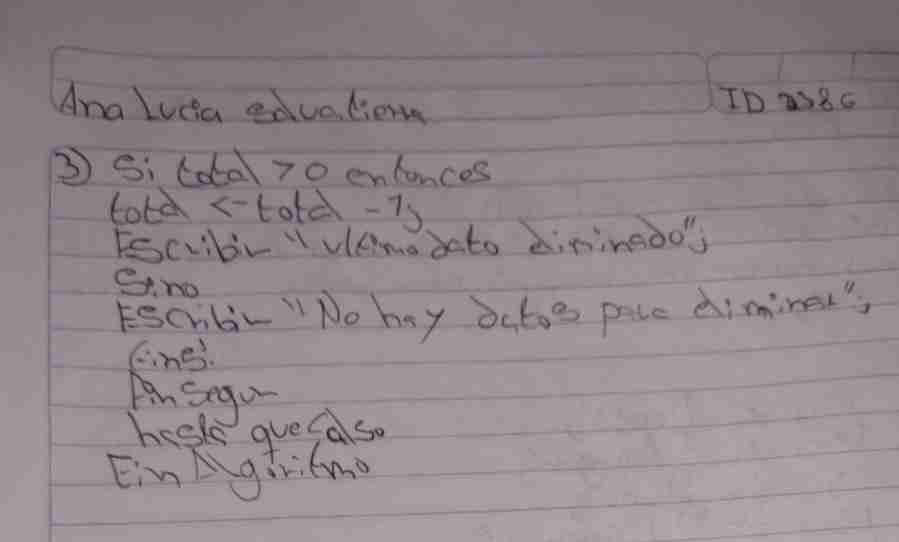 Ana Lucia ID 2386
3) Si total > 0 entonces
total <- total - 1;
Escribir "Ultimo dato eliminado";
Sino
Escribir "No hay datos para eliminar";
Finsi
Finsegun
hasta que falso
Fin Algoritmo